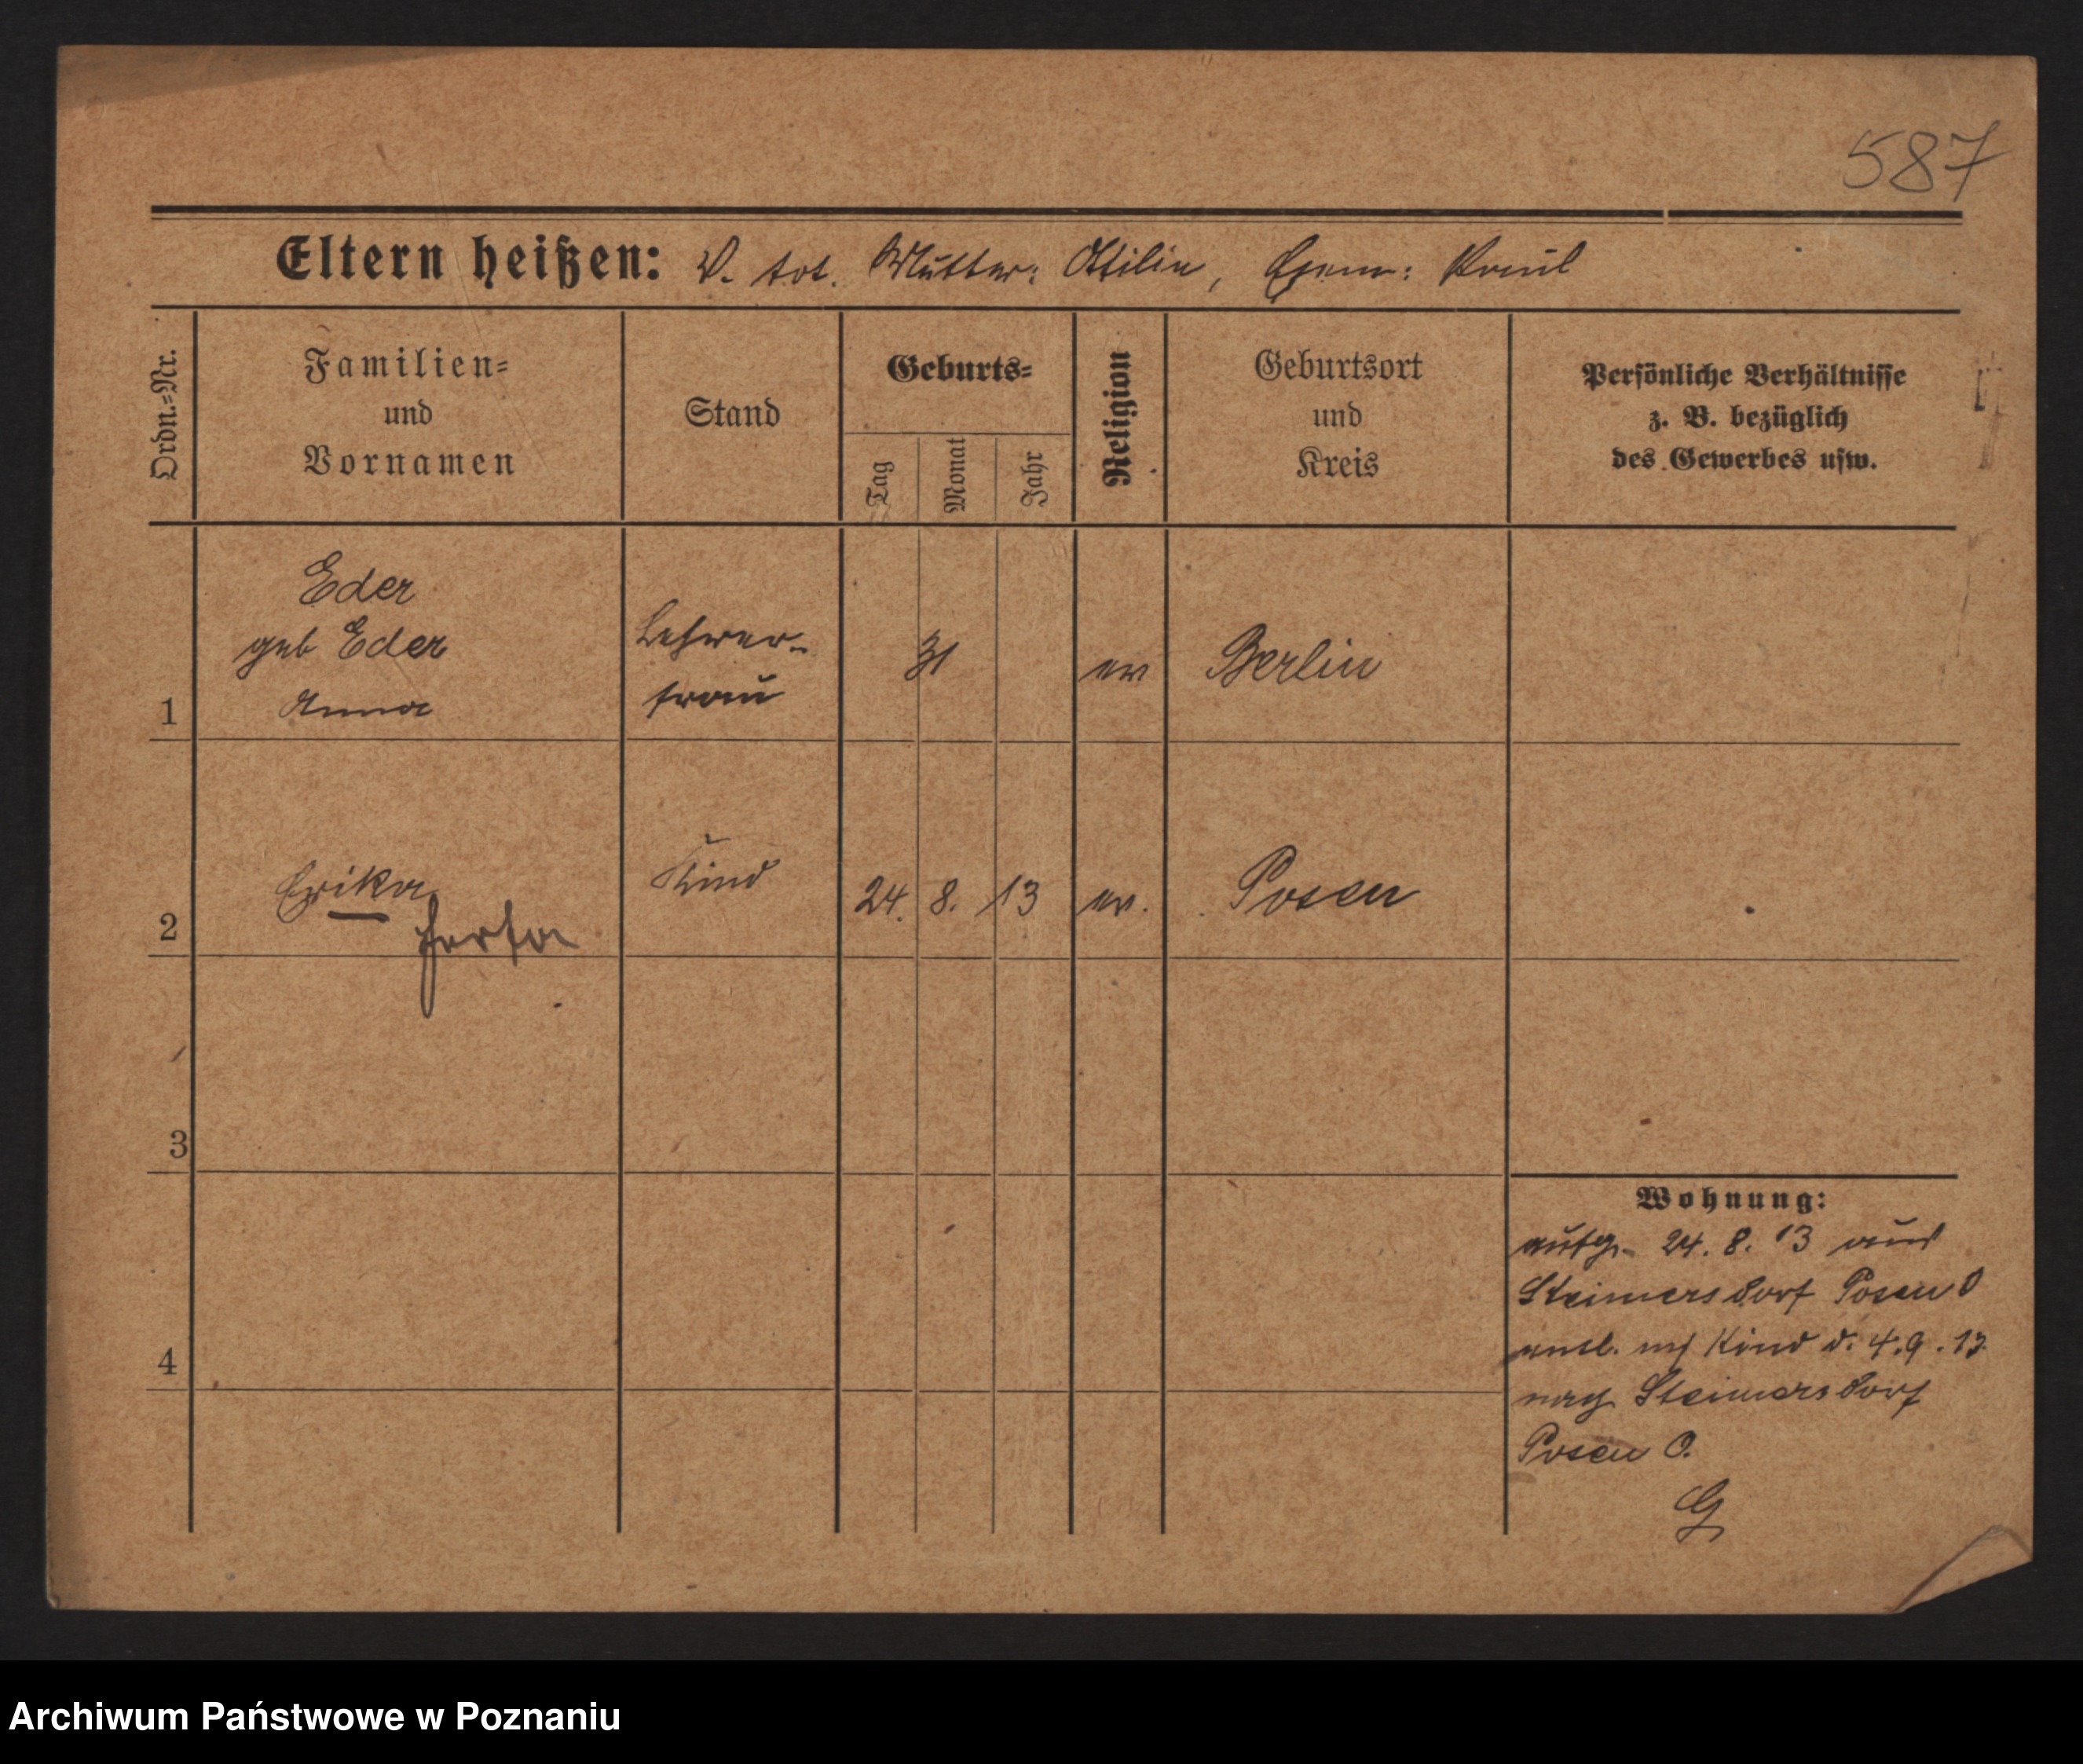 587
Eltern heißen: V. tot. Mutter: Ottilie, Ehem: Paul
Ordn.-Nr.
Familien-
und
Vornamen
Stand
Geburts-
Tag
Monat
Jahr
Religion
Geburtsort
und
Kreis
Persönliche Verhältnisse
z. B. bezüglich
des Gewerbes usw.
1
Eder
geb Eder
Anna
Lehrer-
frau
31
ev
Berlin
2
Erika
Herta
Kind
24. 8. 13
ev.
Posen
3
4
Wohnung:
aufg. 24. 8. 13 aus
Steimersdorf Posen O
entl. mit Kind d. 4. 9. 13.
nach Steimersdorf
Posen O.
Archiwum Państwowe w Poznaniu